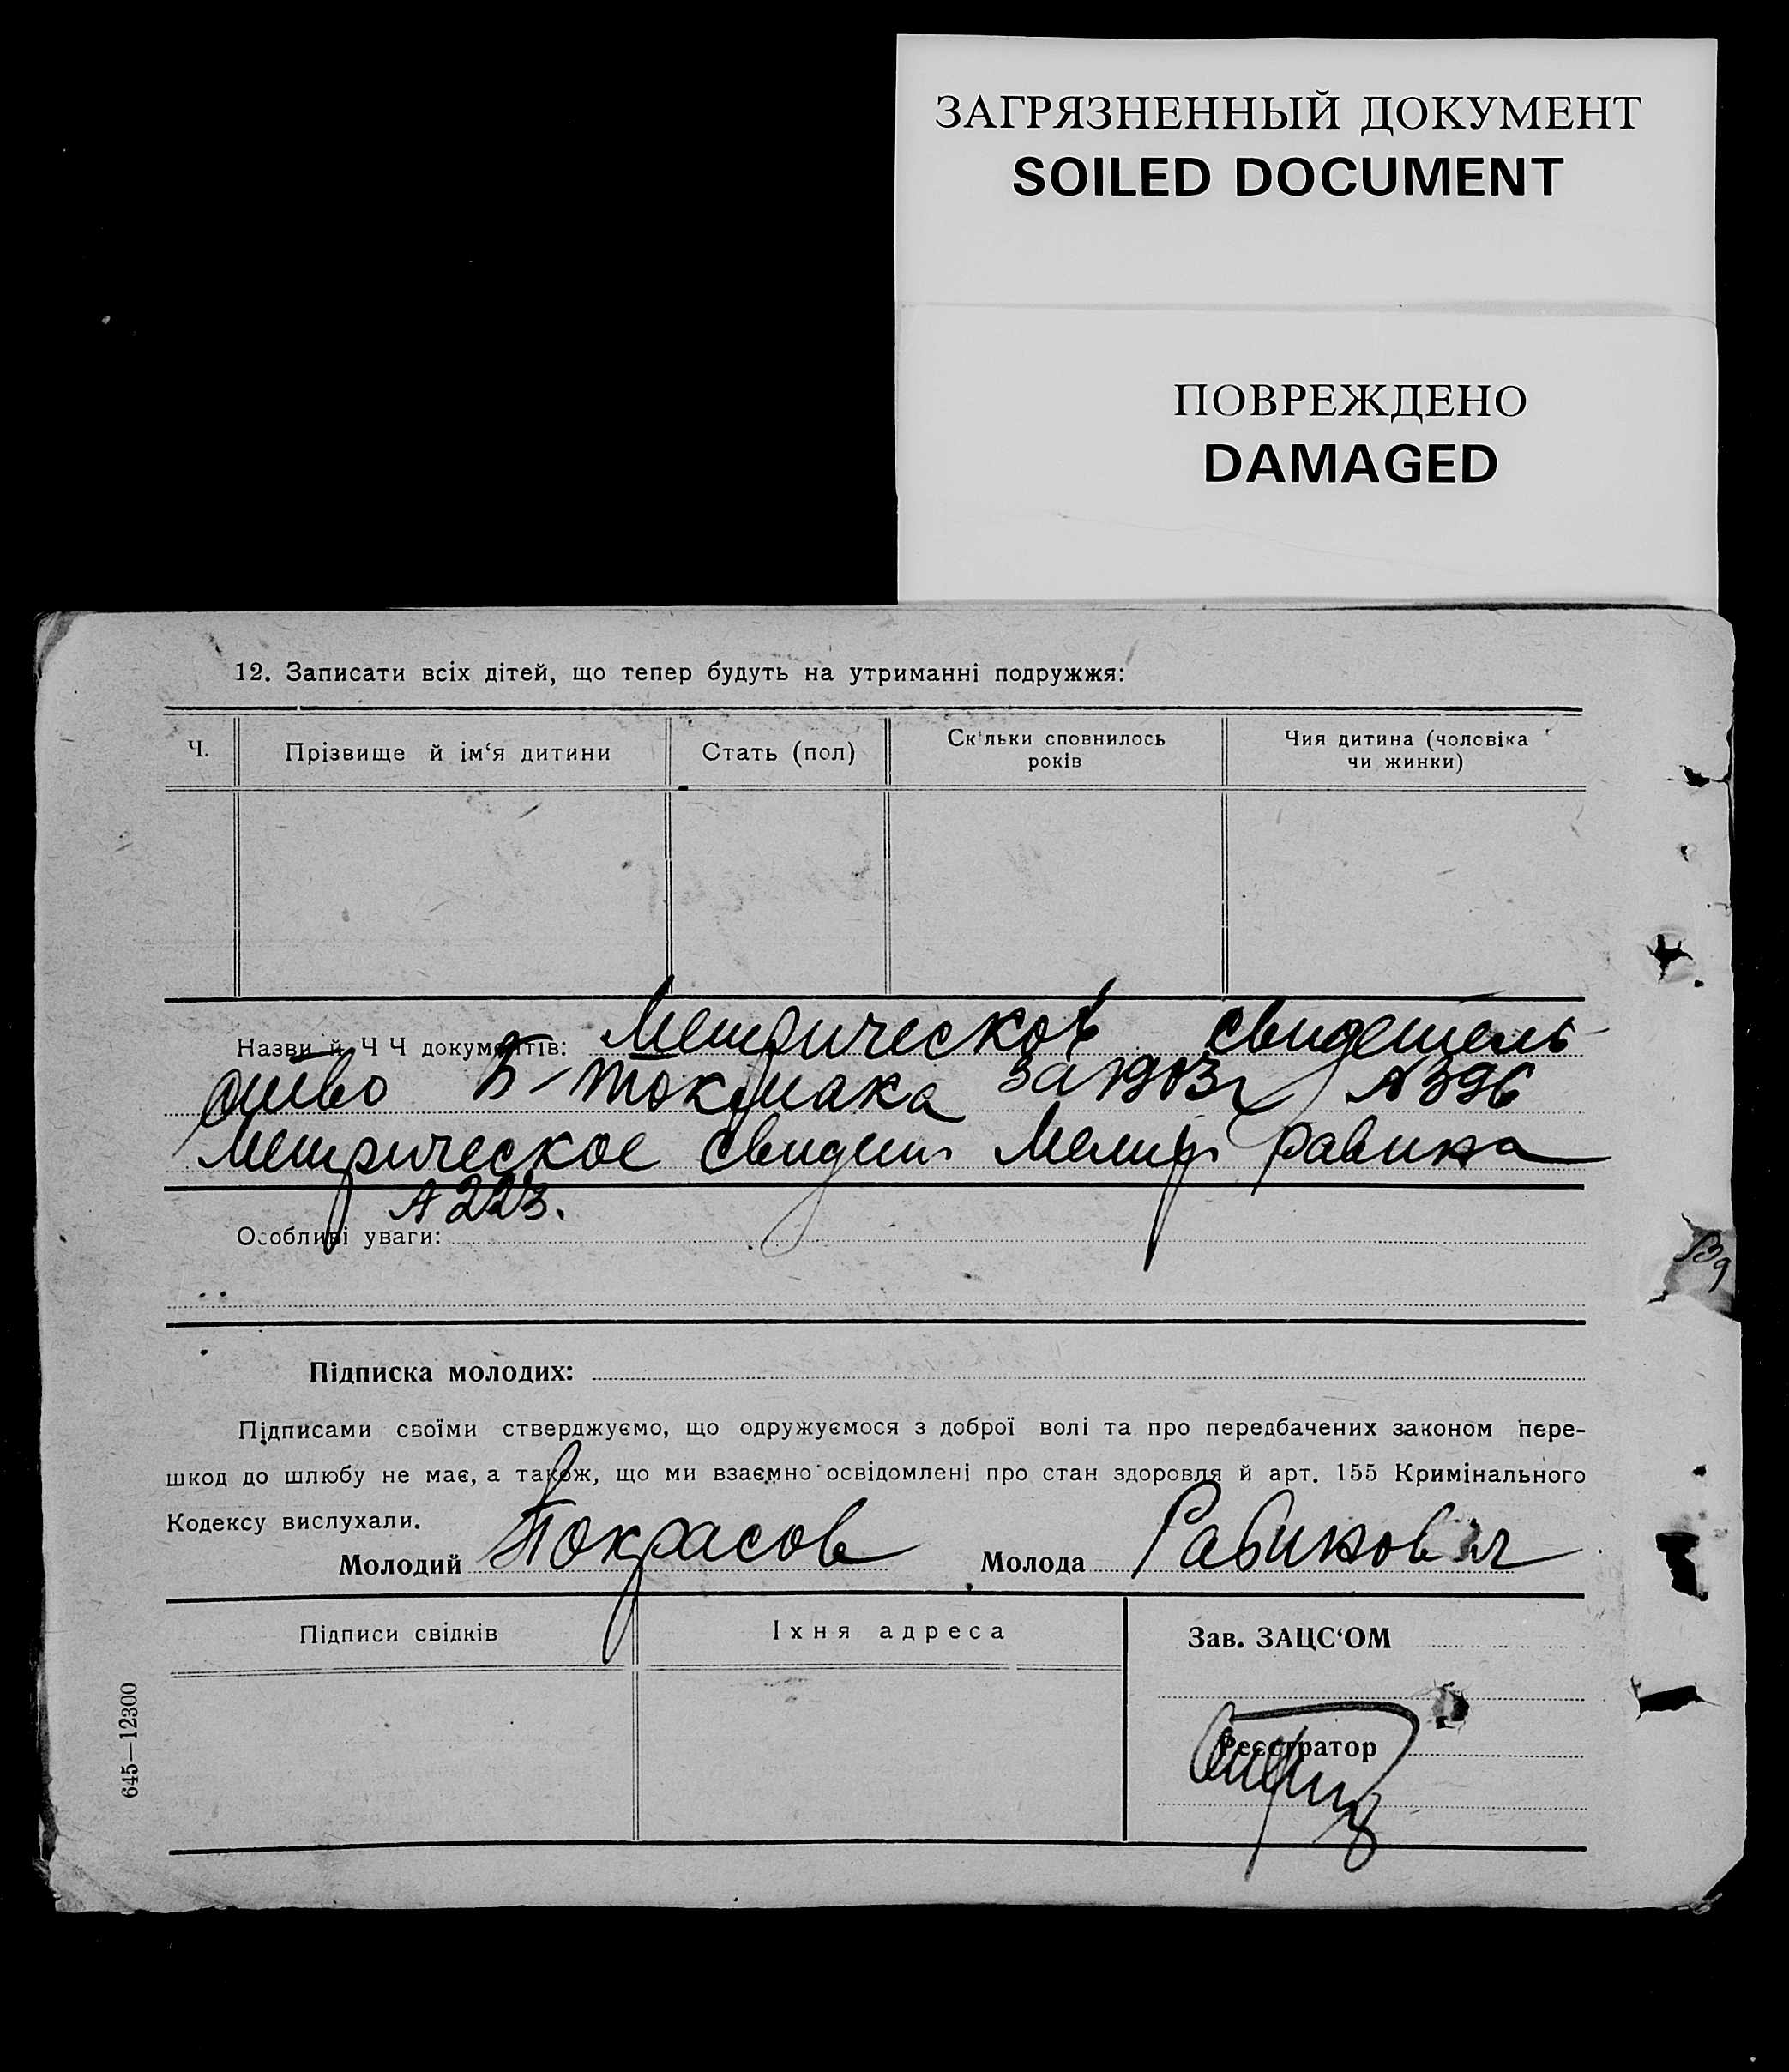 ЗАГРЯЗНЕННЫЙ ДОКУМЕНТ
SOILED DOCUMENT
ПОВРЕЖДЕНО
DAMAGED
12. Записати всіх дітей, що тепер будуть на утриманні подружжя:
Ч.
Прізвище й ім‘я дитини
Стать (пол)
Скільки сповнилось
років
Чия дитина (чоловіка
чи жинки)
Назви й Ч Ч документів: Метрическое свидетель
ство Б-Токмака за 1903г №396
Метрическое свидет Мелит равина
№223.
Особливі уваги:
Підписка молодих:
Підписами своїми стверджуємо, що одружуємося з доброї волі та про передбачених законом пере-
шкод до шлюбу не має, а також, що ми взаємно освідомлені про стан здоровля й арт. 155 Кримінального
Кодексу вислухали.
Молодий Покрасов Молода Рабинович
Підписи свідків
Їхня адреса
Зав. ЗАЦС‘ОМ
Реєстратор
645—12300